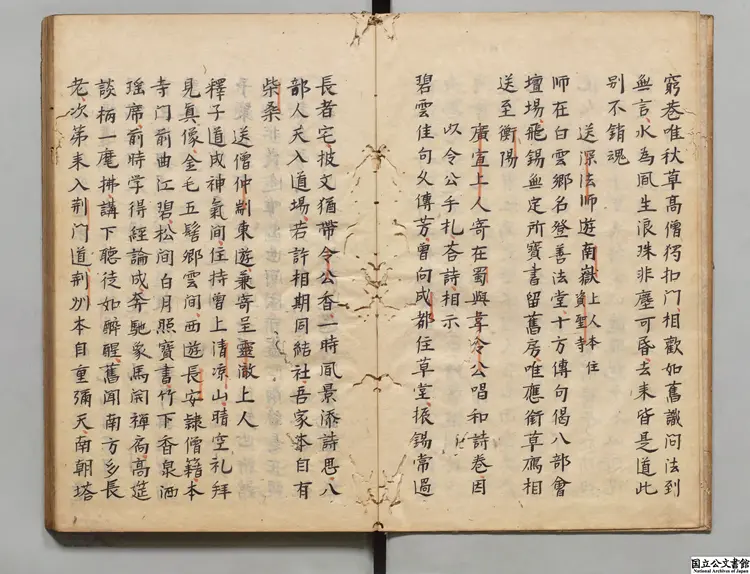 窮巷唯秋草高僧独扣門相歡如舊識问法到
無言水為風生浪珠非塵可昏去来皆是道此
别不銷魂
送凉法师遊南嶽上人本住資聖寺
师在白雲鄉名登善法堂十方傳句偈八部會
壇場飛錫無定所寳書留舊房唯應銜草鴈相
送至衡陽
廣宣上人寄在蜀與韋令公唱和詩巻因
以令公手札荅詩相示
碧雲佳句久傳芳曽向成都住草堂振錫常過
長者宅披文猶帶令公香一時風景添詩思八
部人天入道場若許相期同結社吾家本自有
柴桑
送僧仲剬東遊兼寄呈靈澈上人
釋子道成神氣间住持曽上清凉山晴空礼拜
見真像金毛五髻鄉雲间西遊長安隷僧籍本
寺门前曲江碧松间白月照寳書竹下香泉洒
瑶席前時学得經論成奔馳象馬開禪扃高莚
談柄一麾拂講下聴徒如醉醒舊聞南方多長
老次第来入荆门道荆州本自重彌天南朝塔
国立公文書館
National Archives of Japan